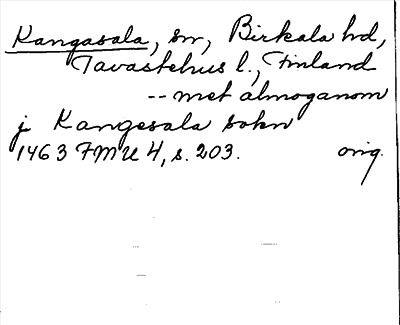 Kangasala, sn, Birkala hd,
Tavastehus l., Finland
-- met almoganom
j Kangesala sokn
1463 FMU 4, s. 203. orig.